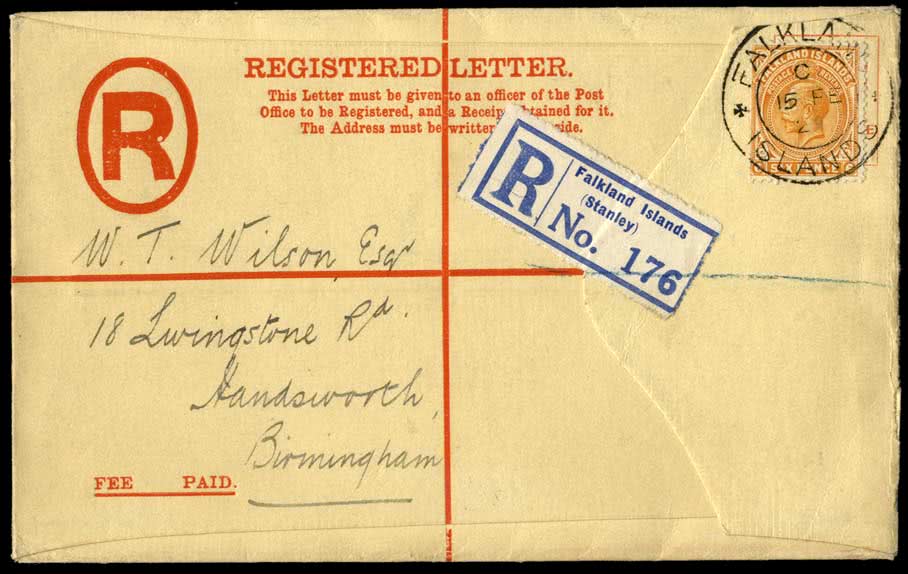 REGISTERED LETTER.
This Letter must be given to an officer of the Post
Office to be Registered, and a Receipt obtained for it.
The Address must be written side.
R
FALKLA
ISLANDS
C
15 FE
FALKLAND ISLANDS
POSTAGE REVENUE
SIX PENCE
R
Falkland Islands
(Stanley)
No. 176
W. T. Wilson, Esqr
18 Livingstone Rd.
Handsworth,
Birmingham
FEE PAID.